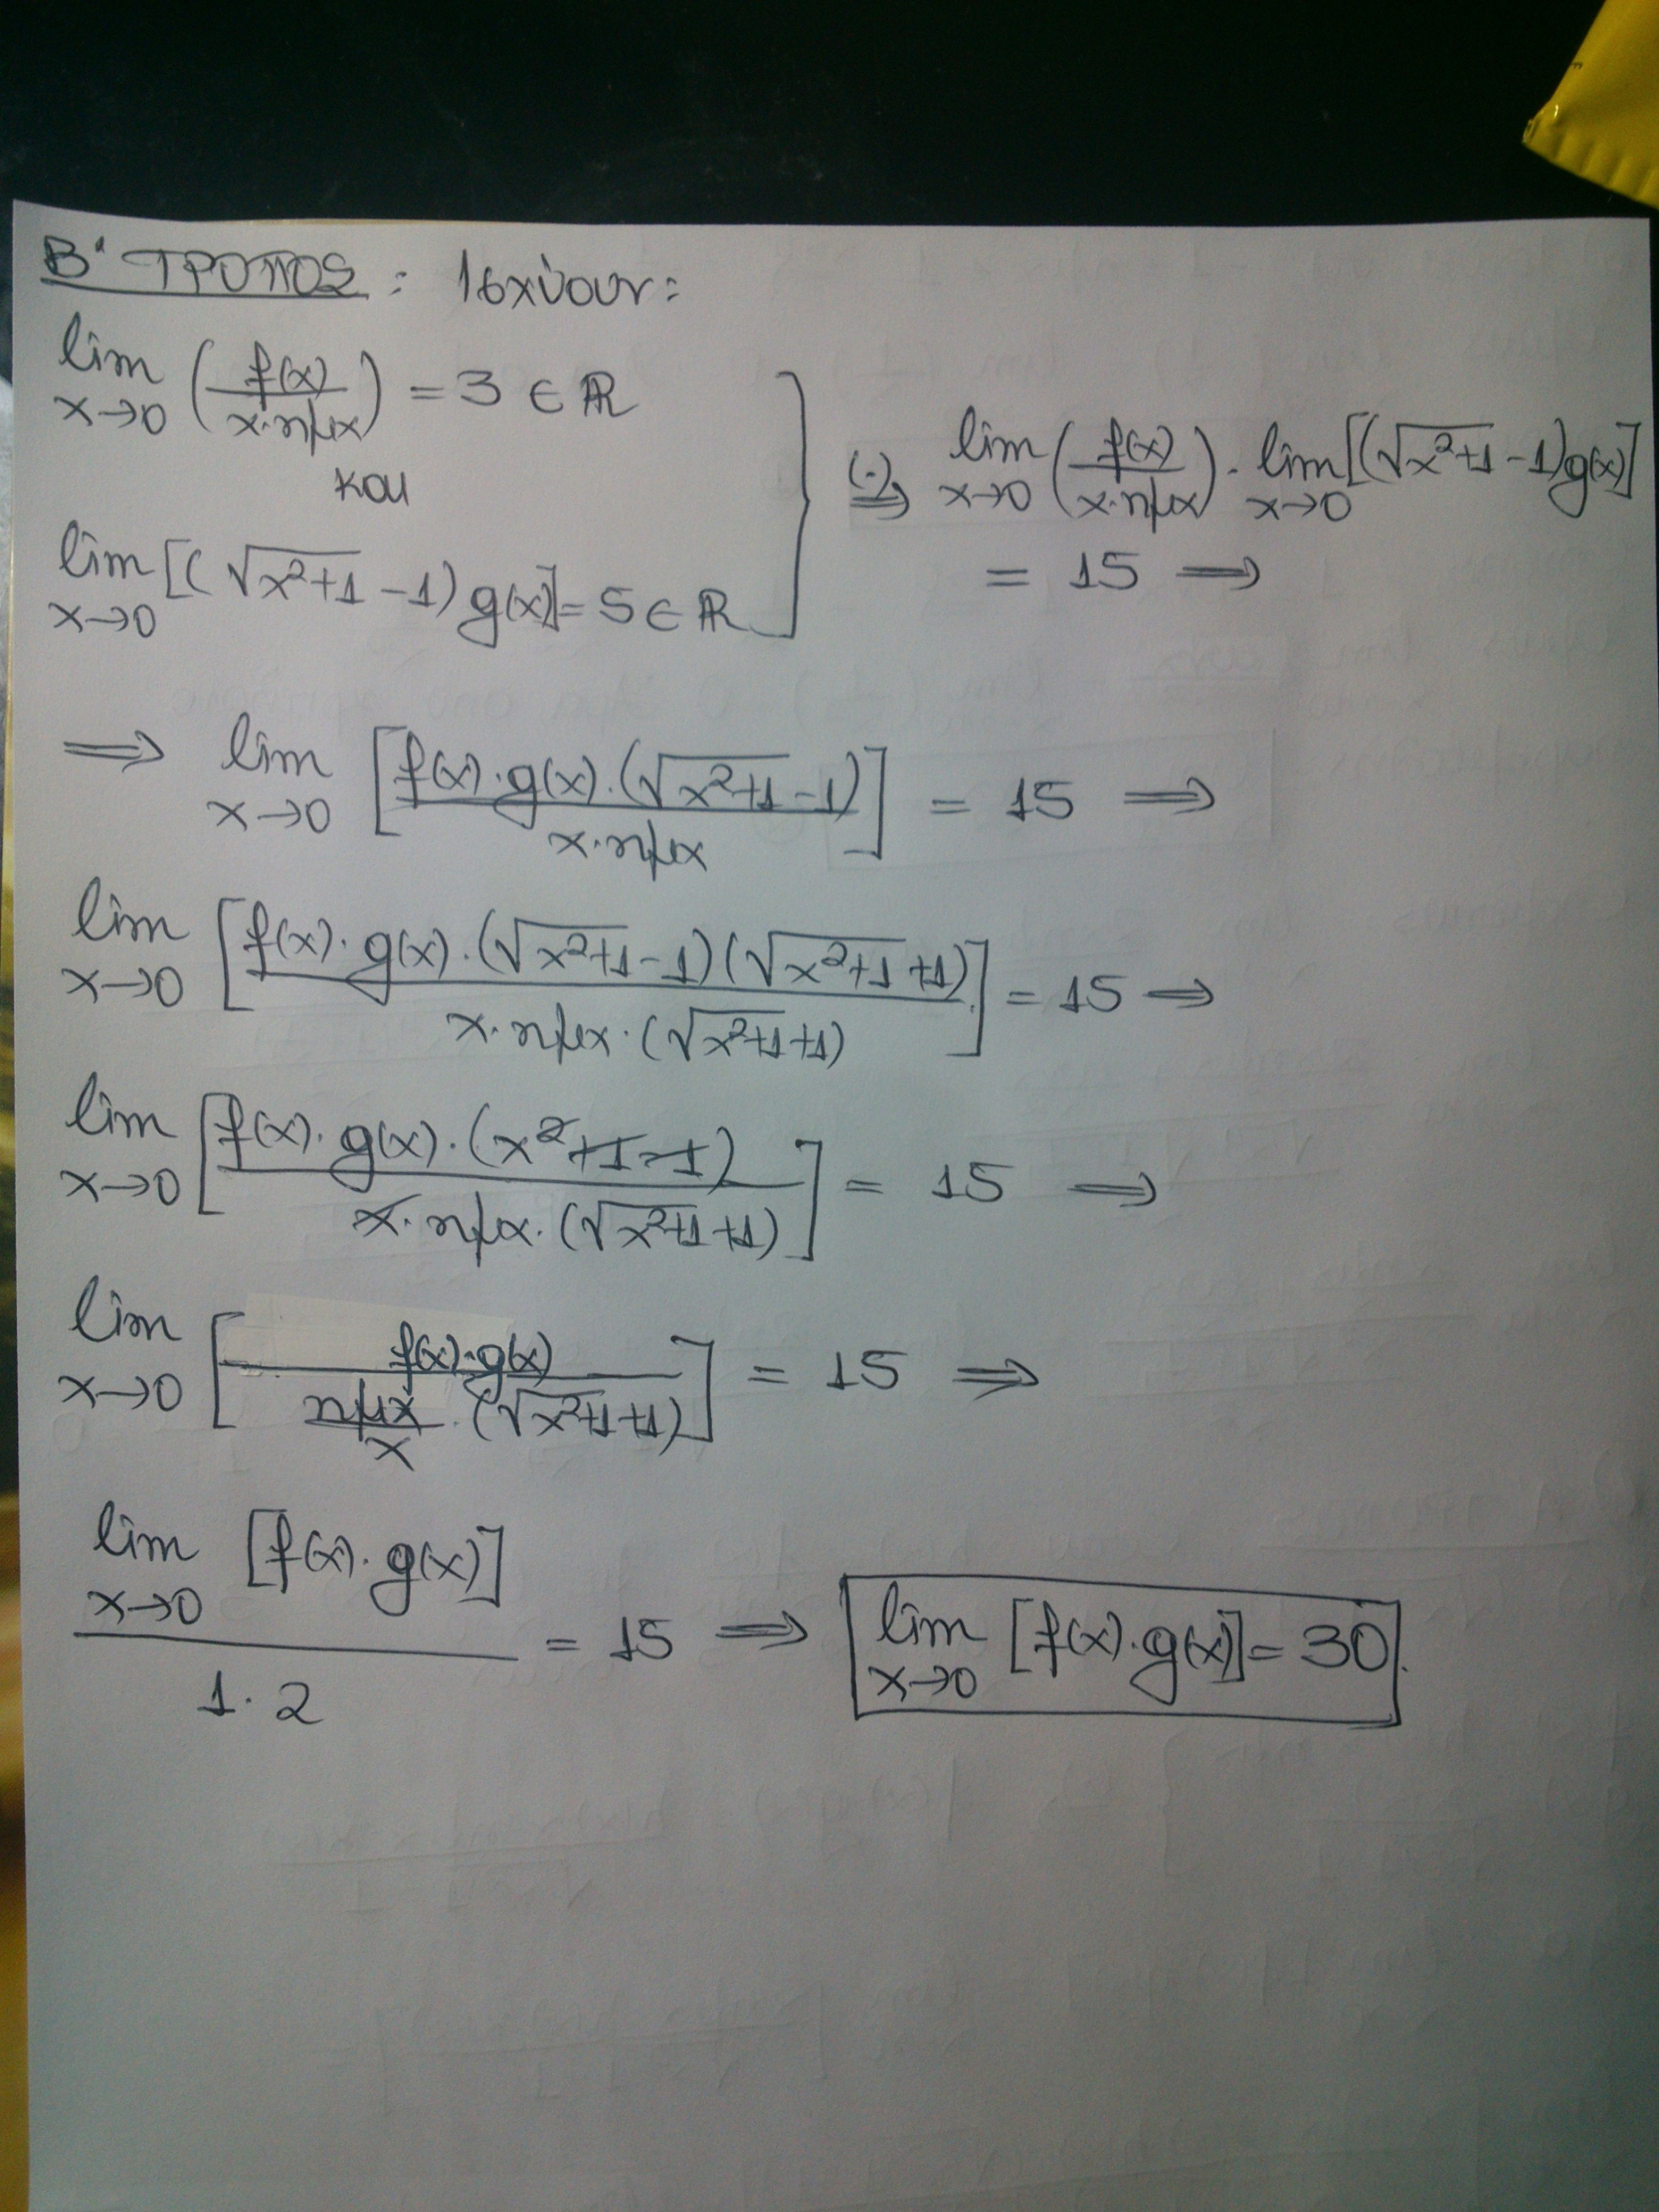 Β' ΤΡΟΠΟΣ : Ισχύουν:
lim x→0 (f(x) / x·ημx) = 3 ∈ ℝ
και
lim x→0 [(√x²+1 -1) g(x)] = 5 ∈ ℝ
(·) ⇒ lim x→0 (f(x) / x·ημx) · lim x→0 [(√x²+1 -1)g(x)]
= 15 ⇒
⇒ lim x→0 [f(x)·g(x)·(√x²+1 -1) / x·ημx] = 15 ⇒
lim x→0 [f(x)·g(x)·(√x²+1 -1)(√x²+1 +1) / x·ημx·(√x²+1 +1)] = 15 ⇒
lim x→0 [f(x)·g(x)·(x²+1-1) / x·ημx·(√x²+1 +1)] = 15 ⇒
lim x→0 [f(x)·g(x) / ημx/x · (√x²+1 +1)] = 15 ⇒
lim x→0 [f(x)·g(x)] / 1·2 = 15 ⇒ lim x→0 [f(x)·g(x)] = 30.